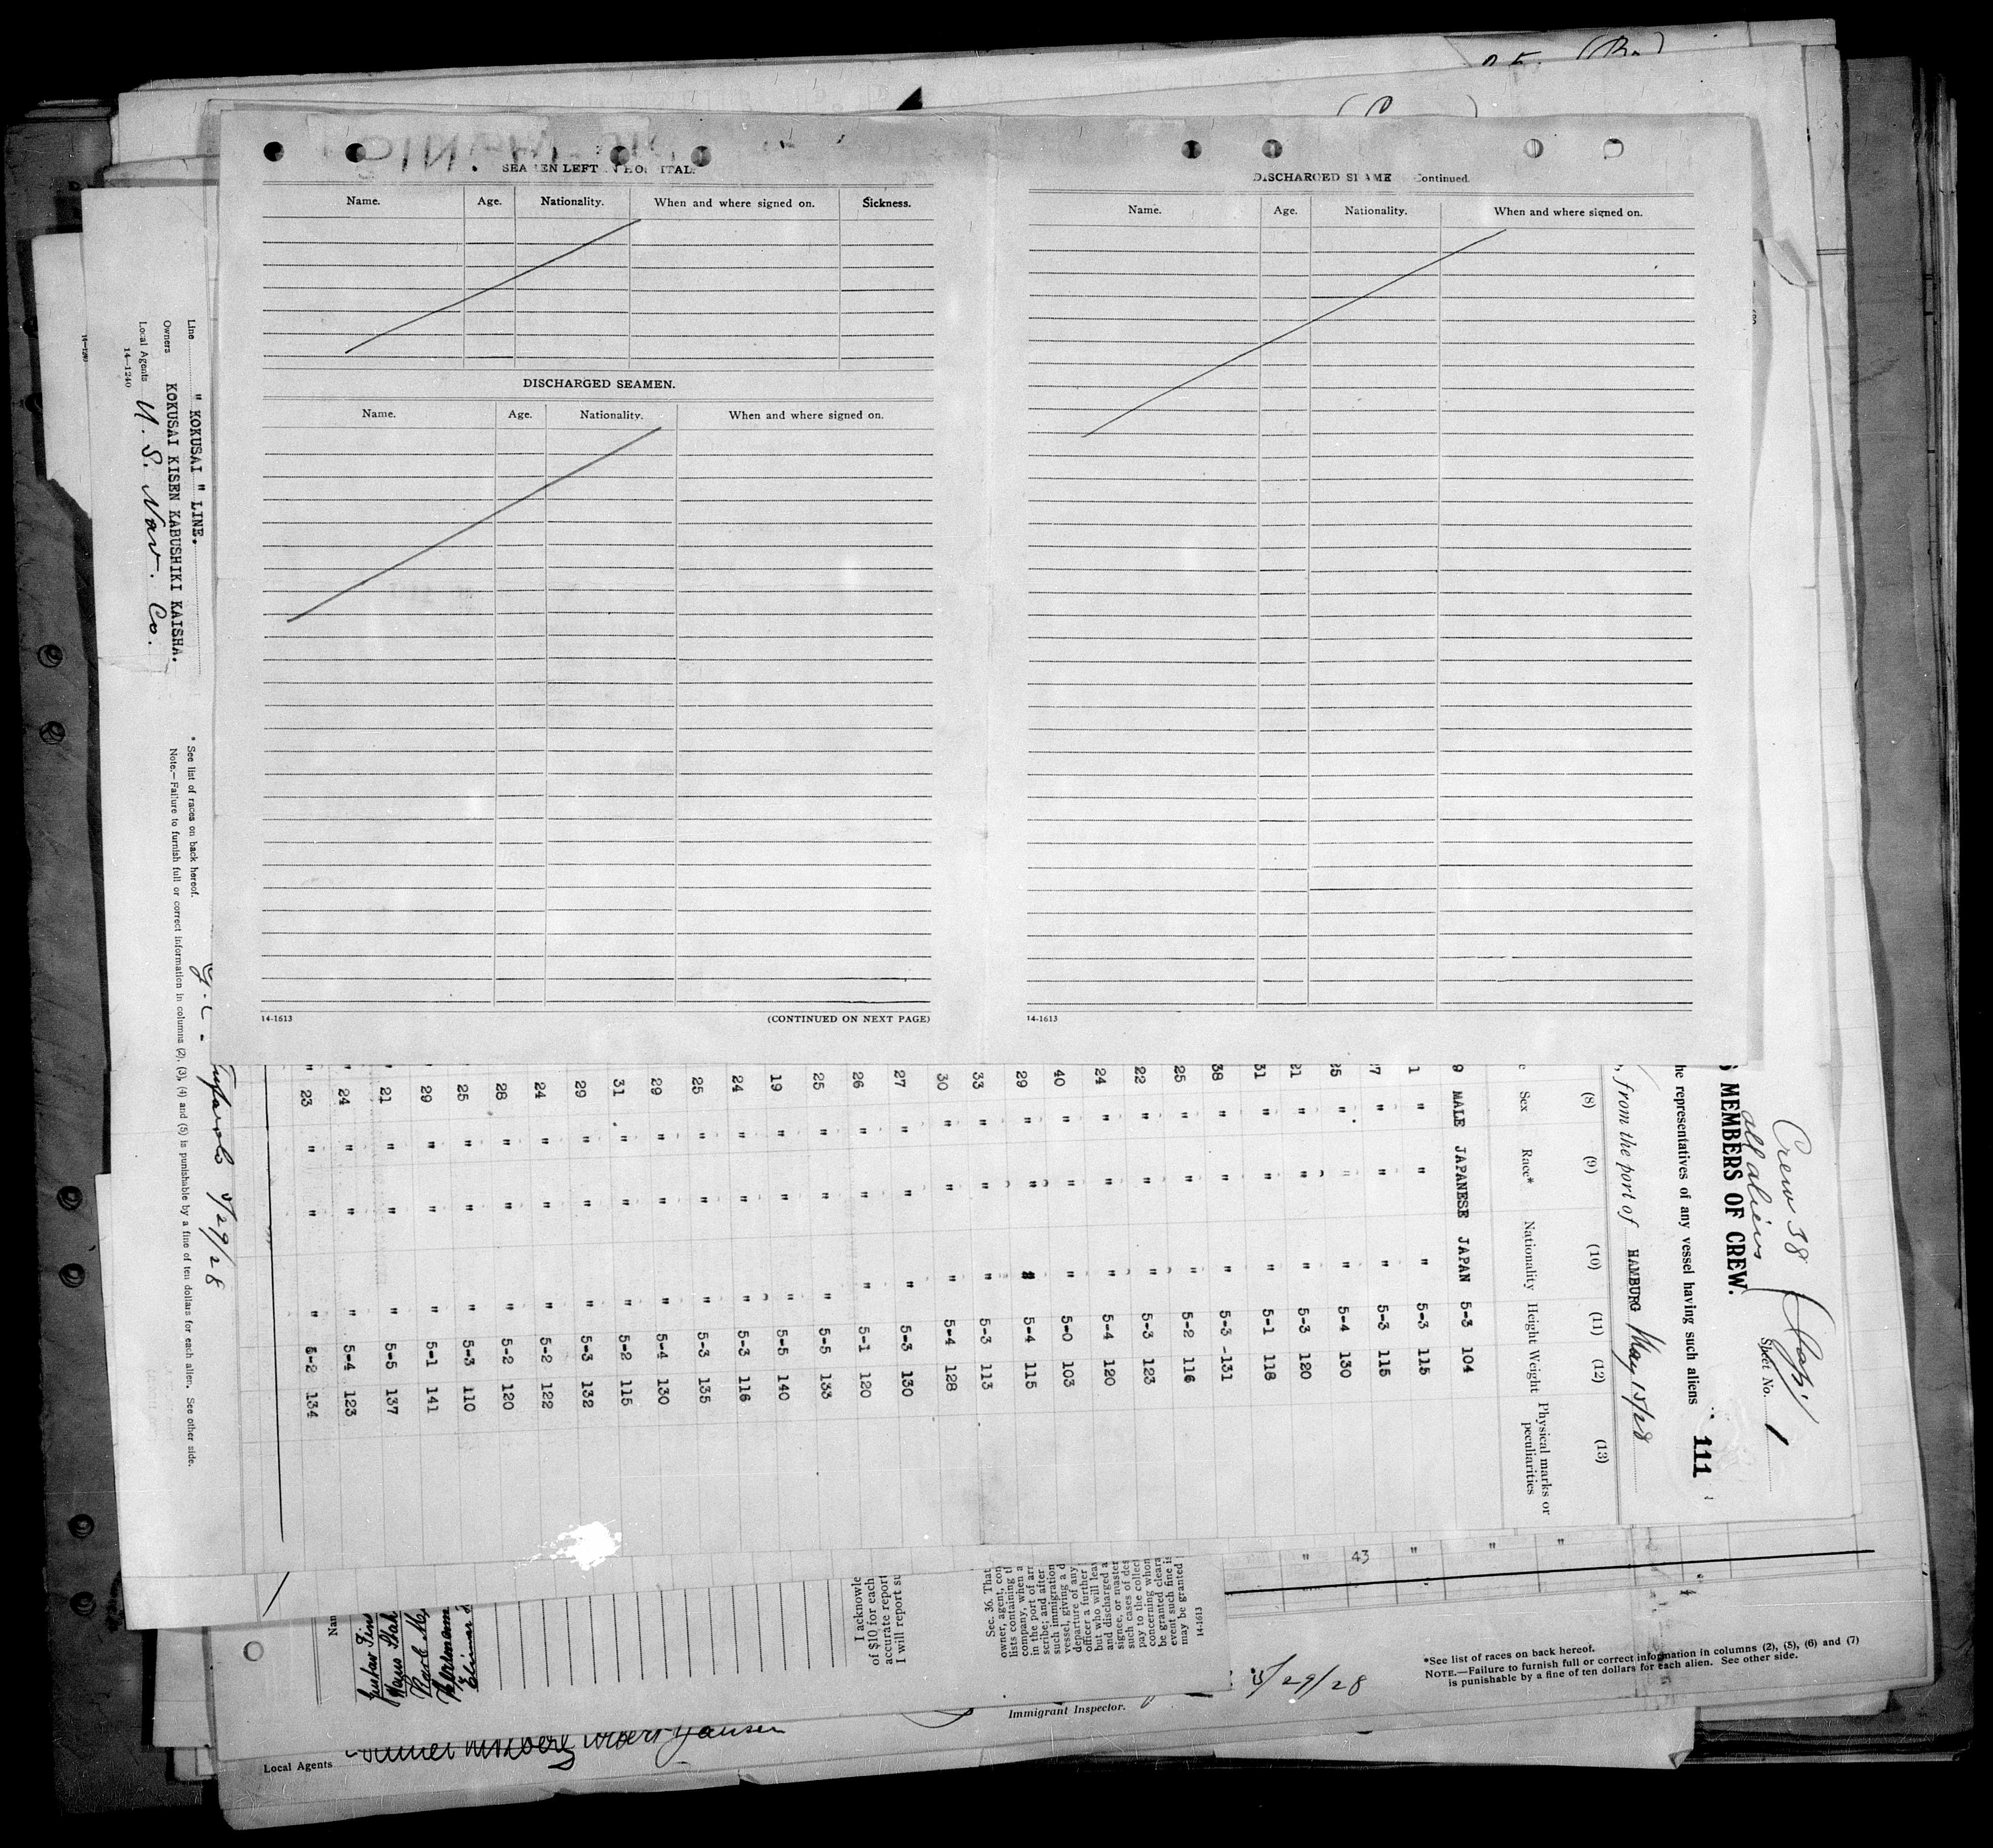 SEA EN LEFT N HO ITAL.
Name. Age. Nationality. When and where signed on. Sickness.
DISCHARGED SEAMEN.
Name. Age. Nationality. When and where signed on.
14-1613
(CONTINUED ON NEXT PAGE)
DISCHARGED S AME Continued.
Name. Age. Nationality. When and where signed on.
14-1613
Line " KOKUSAI " LINE.
Owners KOKUSAI KISEN KABUSHIKI KAISHA.
Local Agents U. S. Nav. Co.
14-1240
* See list of races on back hereof.
Note.—Failure to furnish full or correct information in columns (2), (3), (4) and (5) is punishable by a fine of ten dollars for each alien. See other side.
5/29/28
Crew 38
all aliens
(Jap)
Sheet No. 1
MEMBERS OF CREW.
he representatives of any vessel having such aliens
111
, from the port of HAMBURG May 15/28
(8) (9) (10) (11) (12) (13)
Sex Race* Nationality Height Weight Physical marks or
peculiarities
9 MALE JAPANESE JAPAN 5-3 104
1 " " " 5-3 115
7 " " " 5-3 115
5 " " " 5-4 130
1 " " " 5-3 120
31 " " " 5-1 118
38 " " " 5-3 -131
25 " " " 5-2 116
22 " " " 5-3 123
24 " " " 5-4 120
40 " " " 5-0 103
29 " " " 5-4 115
33 " " " 5-3 113
30 " " " 5-4 128
27 " " " 5-3 130
26 " " " 5-1 120
25 " " " 5-5 133
19 " " " 5-5 140
24 " " " 5-3 116
25 " " " 5-3 135
29 " " " 5-4 130
31 " " " 5-2 115
29 " " " 5-3 132
24 " " " 5-2 122
28 " " " 5-2 120
25 " " " 5-3 110
29 " " " 5-1 141
21 " " " 5-5 137
24 " " " 5-4 123
23 " " " 5-2 134
" 43 " " "
Nam
Gustav
Hans
Karl
Hermann
I acknowle
of $10 for each
accurate report
I will report su
Sec. 36. That
owner, agent, con
lists containing t
company, when a
in the port of arr
scribe; and after
such immigration
vessel, giving a d
departure of any
officer a further
but who will lea
and discharged a
signee, or master
such cases of des
pay to the collec
concerning whom
be granted cleara
event such fine is
may be granted
14-1613
5/29/28
Immigrant Inspector.
*See list of races on back hereof.
NOTE.—Failure to furnish full or correct information in columns (2), (5), (6) and (7)
is punishable by a fine of ten dollars for each alien. See other side.
Local Agents